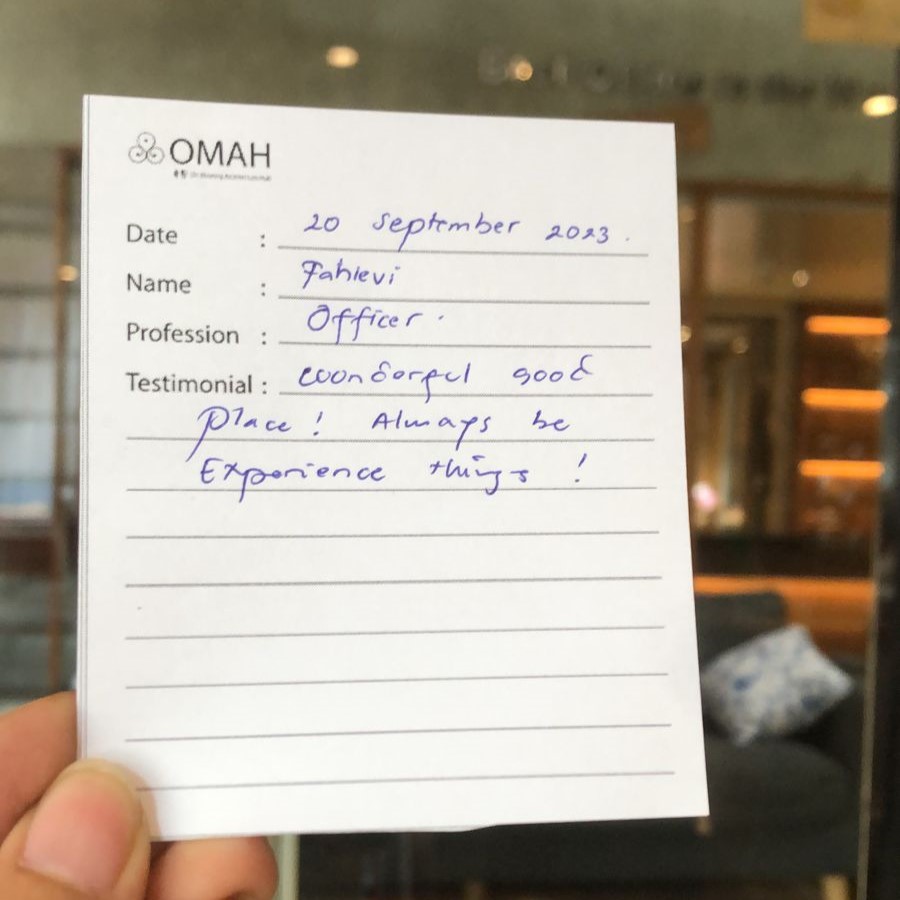 OMAH
Date : 20 September 2023.
Name : Fahlevi
Profession : Officer.
Testimonial : Wonderful good
Place! Always be
Experience things!